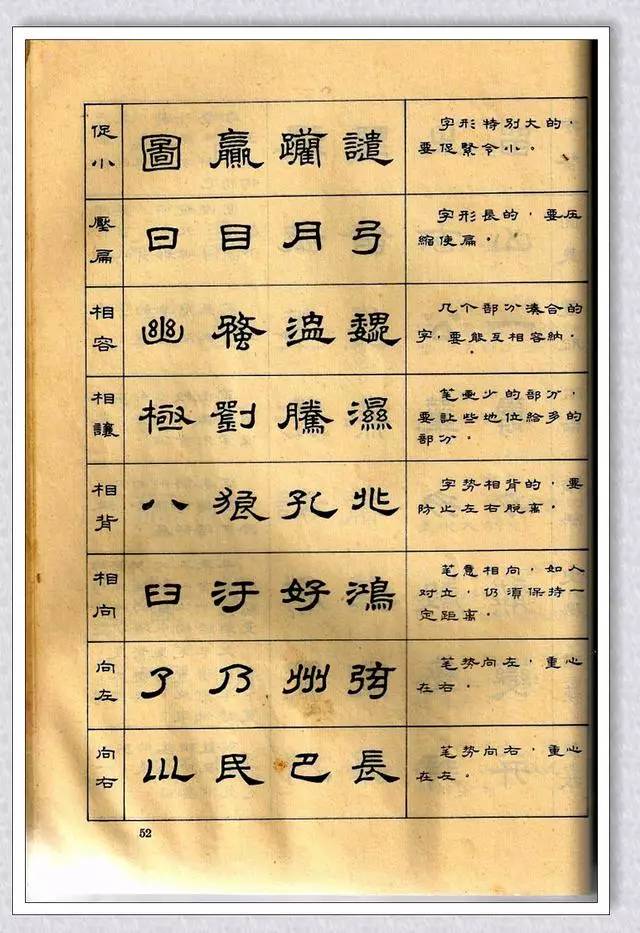 促小
圖 贏 譴
字形特别大的,
要促緊令小。
壓扁
日 目 月 弓
字形長的,要压
縮使扁。
相容
幽 温 魏
几个部分湊合的
字,要能互相容納。
相讓
極 劉 騰 濕
笔畫少的部分,
要让些地位給多的
部分。
相背
八 狼 孔
字势相背的,要
防止左右脱离。
相向
臼 汙 好 鴻
笔意相向,如人
对立,仍須保持一
定距离。
向左
了 乃 州
笔势向左,重心
在右。
向右
民 巴 長
笔势向右,重心
在左。
52